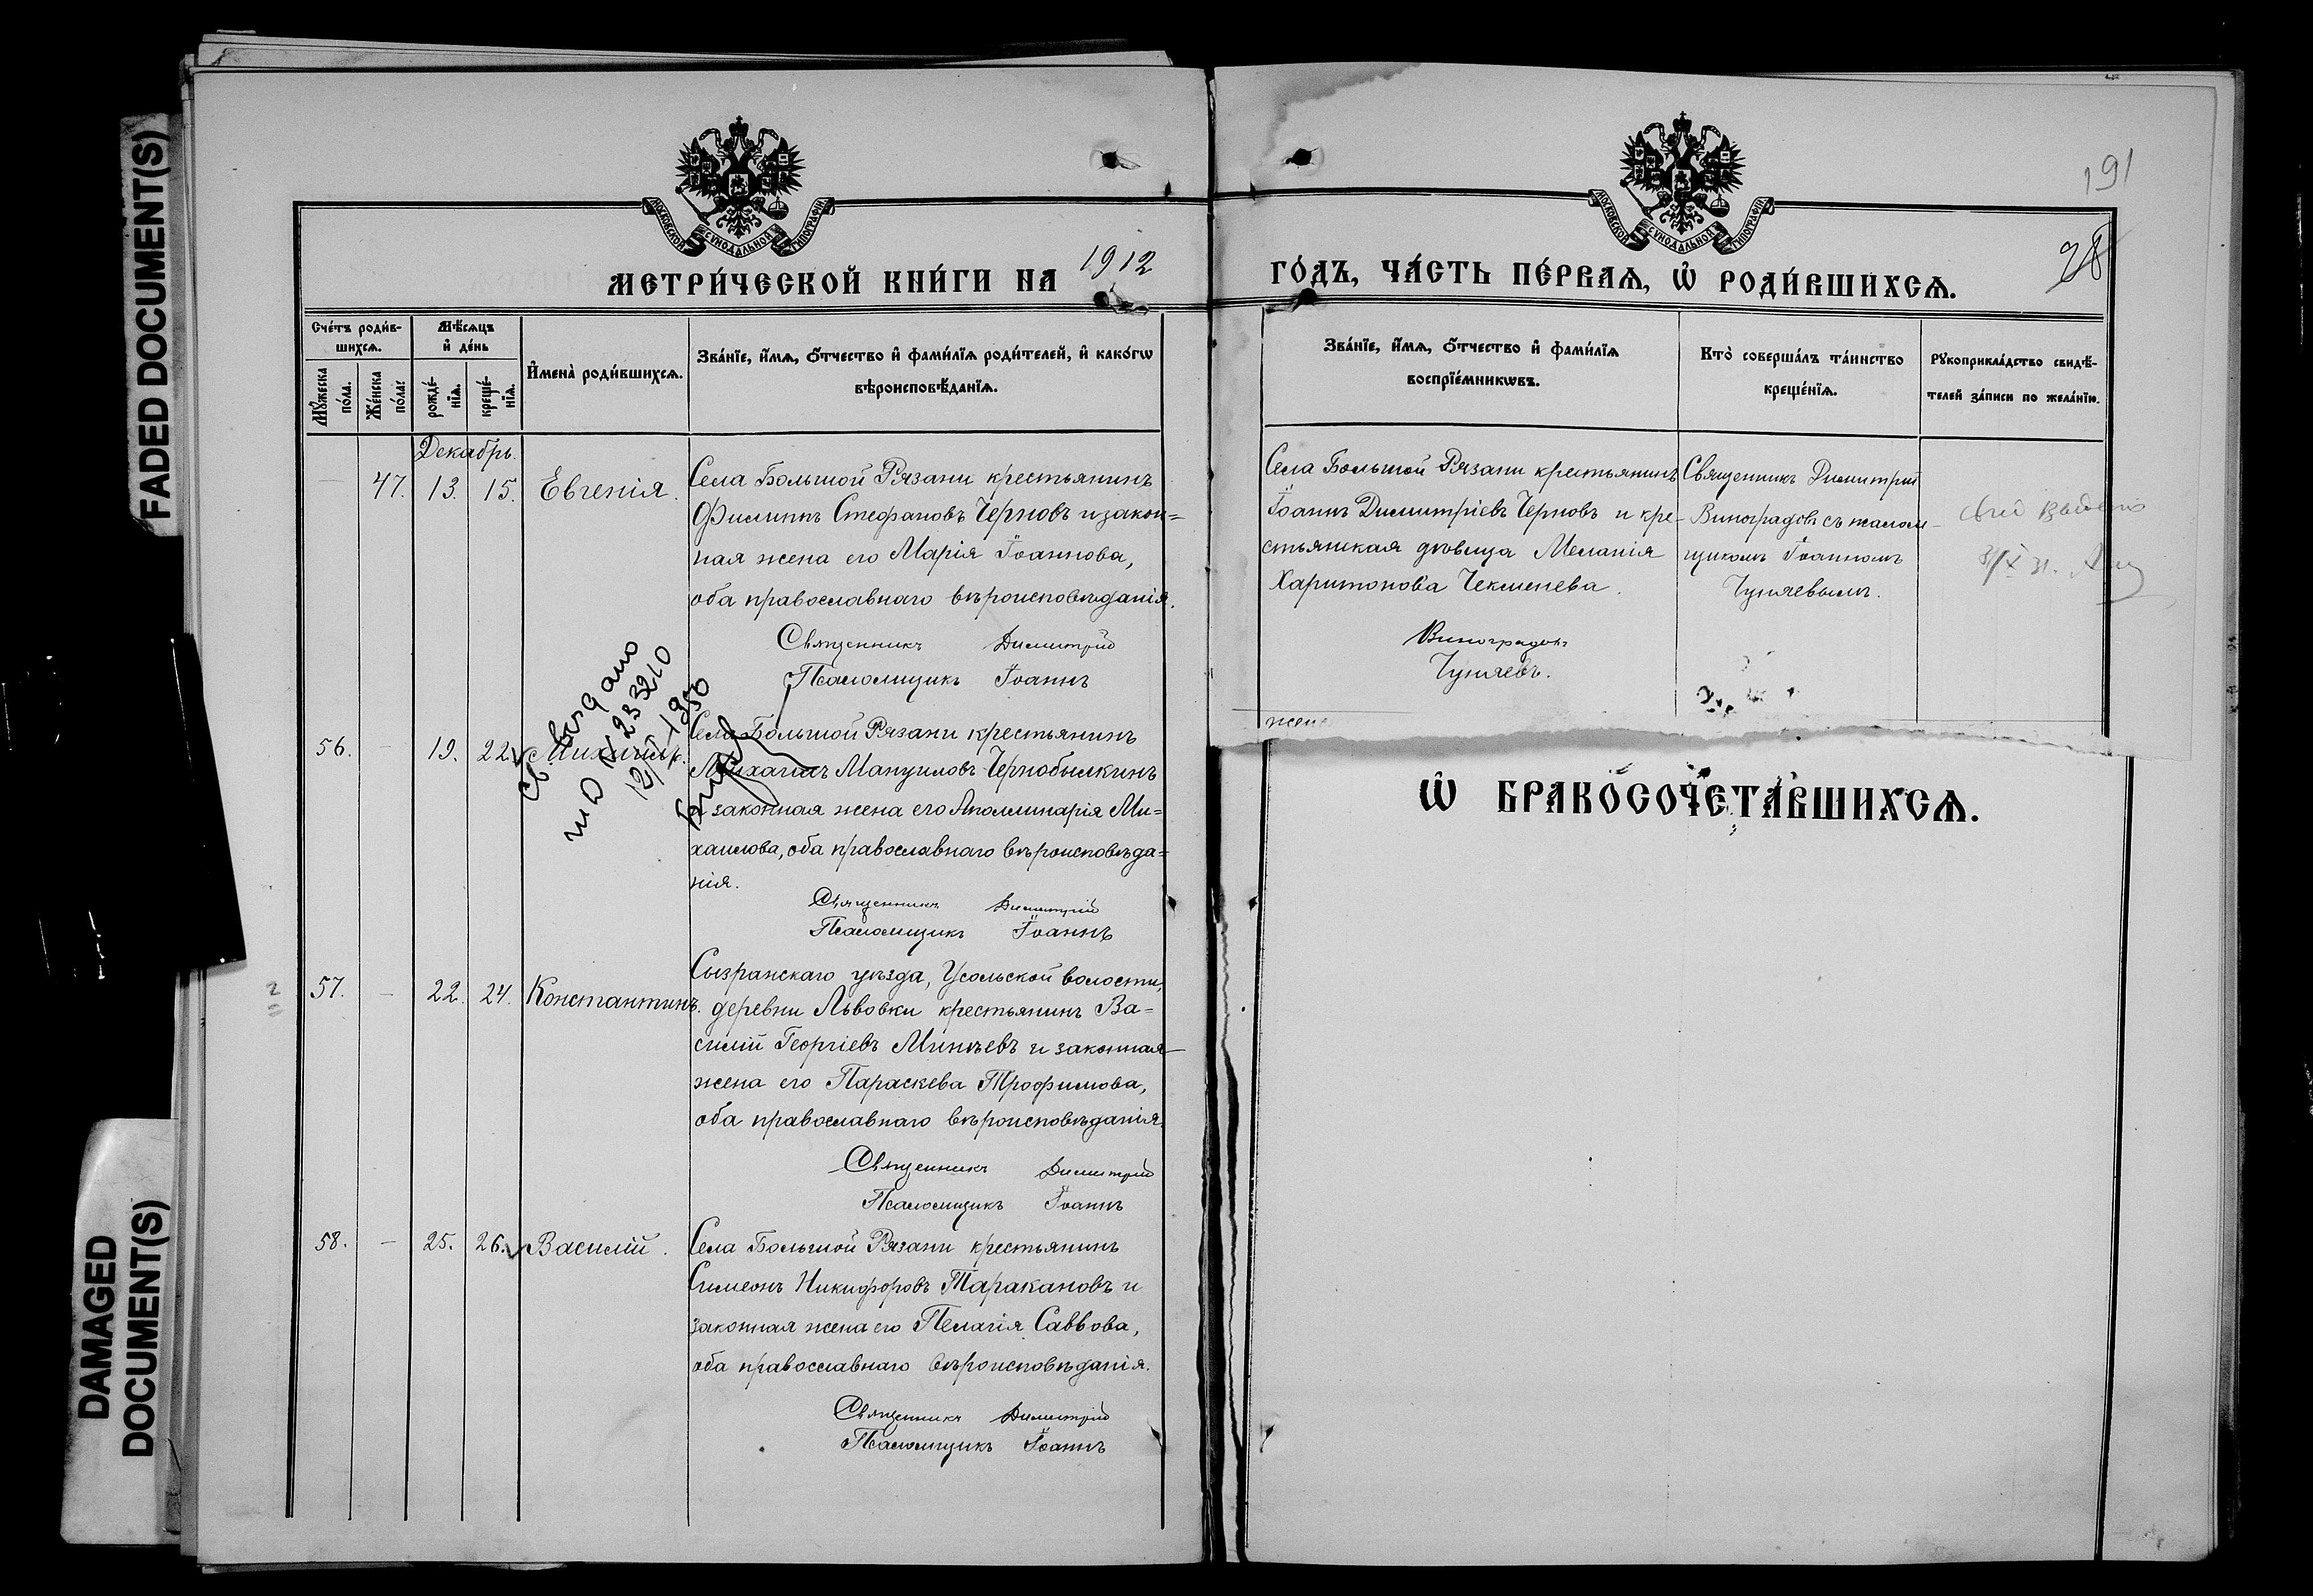 FADED DOCUMENT(S)
DAMAGED
DOCUMENT(S)
МОСКОВСКОЙ СУНОДАЛЬНОЙ ТИПОГРАФІИ
МЕТРИ́ЧЕСКОЙ КНИ́ГИ НА 1912
Сче́тъ роди́в-
шихсѧ.
Мѣ́сѧцъ
и҆ де́нь
Мꙋ́жеска
по́ла.
Же́нска
по́ла.
рожде́-
нїѧ.
креще́-
нїѧ.
И҆мена̀ роди́вшихсѧ.
Зва́нїе, и҆́мѧ, ѻ҆́тчество и҆ фами́лїѧ роди́телей, и҆ како́гѡ
вѣроисповѣ́данїѧ.
Декабрь.
47. 13. 15. Евгенія.
Села Большой Рязани крестьянинъ
Филиппъ Стефановъ Черновъ и закон=
ная жена его Марія Іоаннова,
оба православнаго вѣроисповѣданія.
Священникъ Димитрій
Псаломщикъ Іоаннъ
56. - 19. 22. Михаилъ.
№ 233210
1950
Села Большой Рязани крестьянинъ
Михаилъ Мануиловъ Чернобылкинъ
и законная жена его Аполлинарія Ми=
хаилова, оба православнаго вѣроисповѣда=
нія.
Священникъ Димитрій
Псаломщикъ Іоаннъ
57. - 22. 24. Константинъ.
Сызранскаго уѣзда, Усольской волости,
деревни Львовки крестьянинъ Ва=
силій Георгіевъ Минѣевъ и законная
жена его Параскева Трофимова,
оба православнаго вѣроисповѣданія
Священникъ Димитрій
Псаломщикъ Іоаннъ
58. - 25. 26. Василій.
Села Большой Рязани крестьянинъ
Симеонъ Никифоровъ Таракановъ и
законная жена его Пелагія Саввова,
оба православнаго вѣроисповѣданія.
Священникъ Димитрій
Псаломщикъ Іоаннъ
191
28
МОСКОВСКОЙ СУНОДАЛЬНОЙ ТИПОГРАФІИ
ГО́ДЪ, ЧА́СТЬ ПЕ́РВАѦ, Ѡ҆ РОДИ́ВШИХСѦ.
Зва́нїе, и҆́мѧ, ѻ҆́тчество и҆ фами́лїѧ
воспрїе́мникѡвъ.
Кто̀ соверша́лъ та́инство
креще́нїѧ.
Рꙋкоприкла́дство свидѣ́-
телей за́писи по жела́нїю.
Села Большой Рязани крестьянинъ
Іоаннъ Димитріевъ Черновъ и кре-
стьянская дѣвица Меланія
Харитонова Чекменева.
Священникъ Димитрій
Виноградовъ съ псалом-
щикомъ Іоанномъ
Чуняевымъ.
Виноградовъ
Чуняевъ.
жена
Ѡ҆ БРАКОСОЧЕТА́ВШИХСѦ.